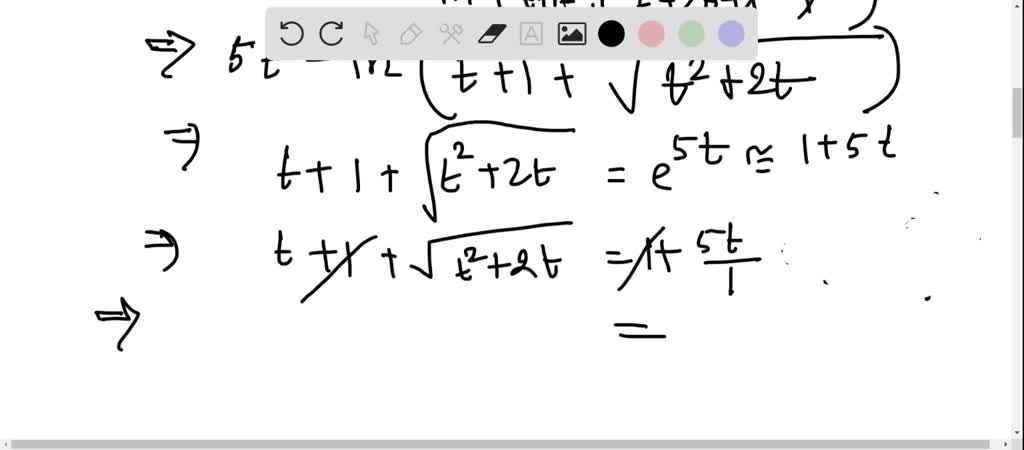 ⇒ 5t = ln (t+1+√(t²+2t))
⇒ t+1+√(t²+2t) = e^5t ≅ 1+5t
⇒ t+1+√(t²+2t) = 1+ 5t/1
⇒ =